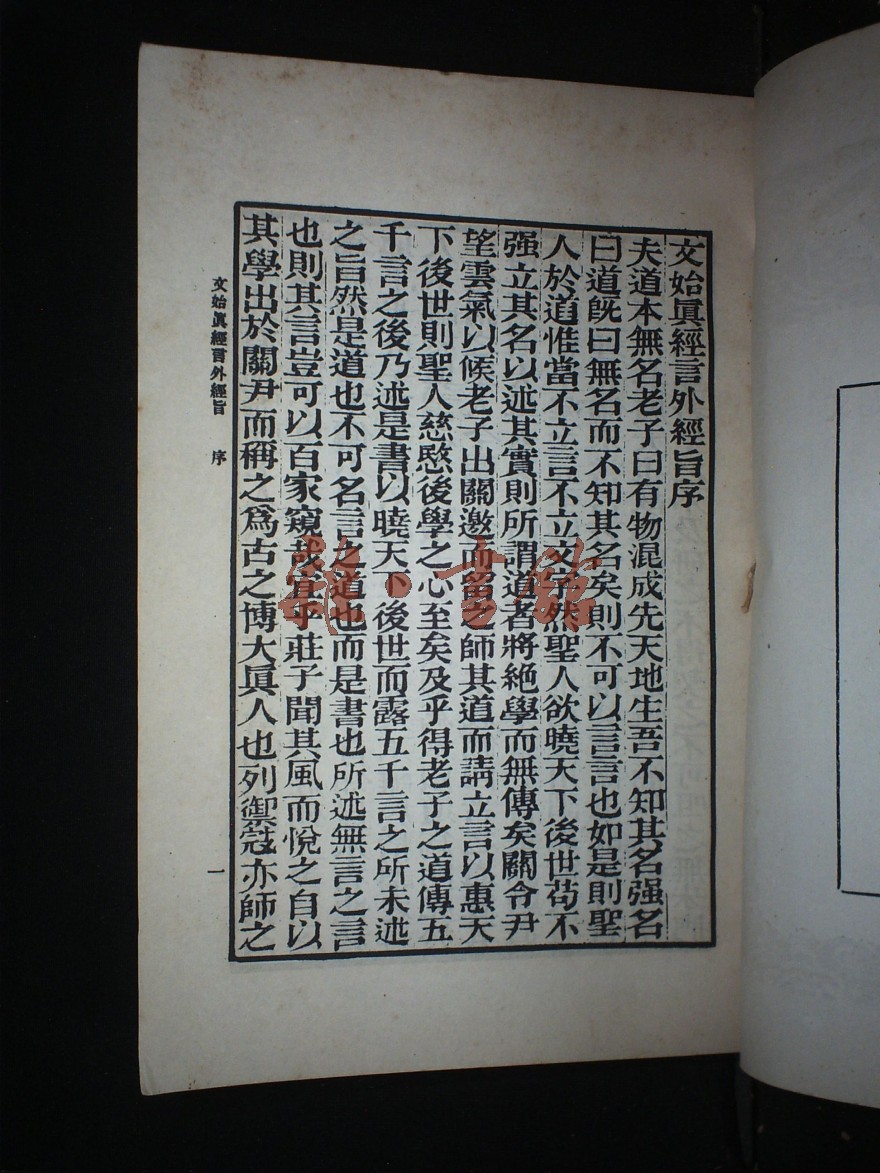 文始眞經言外經旨序
夫道本無名老子曰有物混成先天地生吾不知其名强名
曰道旣曰無名而不知其名矣則不可以言言也如是則聖
人於道惟當不立言不立文字然聖人欲曉天下後世苟不
强立其名以述其實則所謂道者將絶學而無傳矣關令尹
望雲氣以候老子出關邀而留之師其道而請立言以惠天
下後世則聖人慈愍後學之心至矣及乎得老子之道傳五
千言之後乃述是書以曉天下後世而露五千言之所未述
之旨然是道也不可名言之道也而是書也所述無言之言
也則其言豈可以百家窺哉宜乎莊子聞其風而悅之自以
其學出於關尹而稱之爲古之博大眞人也列禦寇亦師之
文始眞經言外經旨 序 一
雜·書館